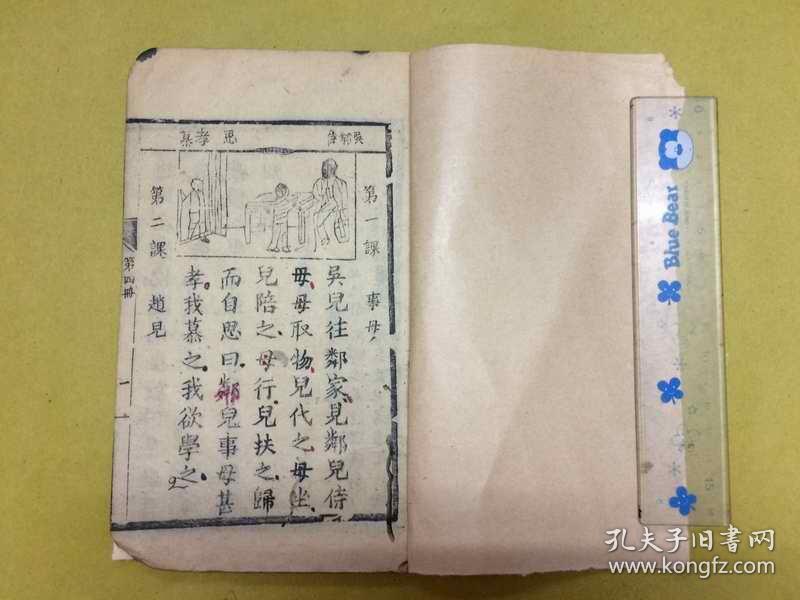 吳鄰侍
思孝慕
第一課 事母
吳兒往鄰家見鄰兒侍
母母取物兒代之母坐
兒陪之母行兒扶之歸
而自思曰鄰兒事母甚
孝我慕之我欲學之
第二課 趙兒
第四冊
一
Blue Bear
孔夫子旧书网
www.kongfz.com